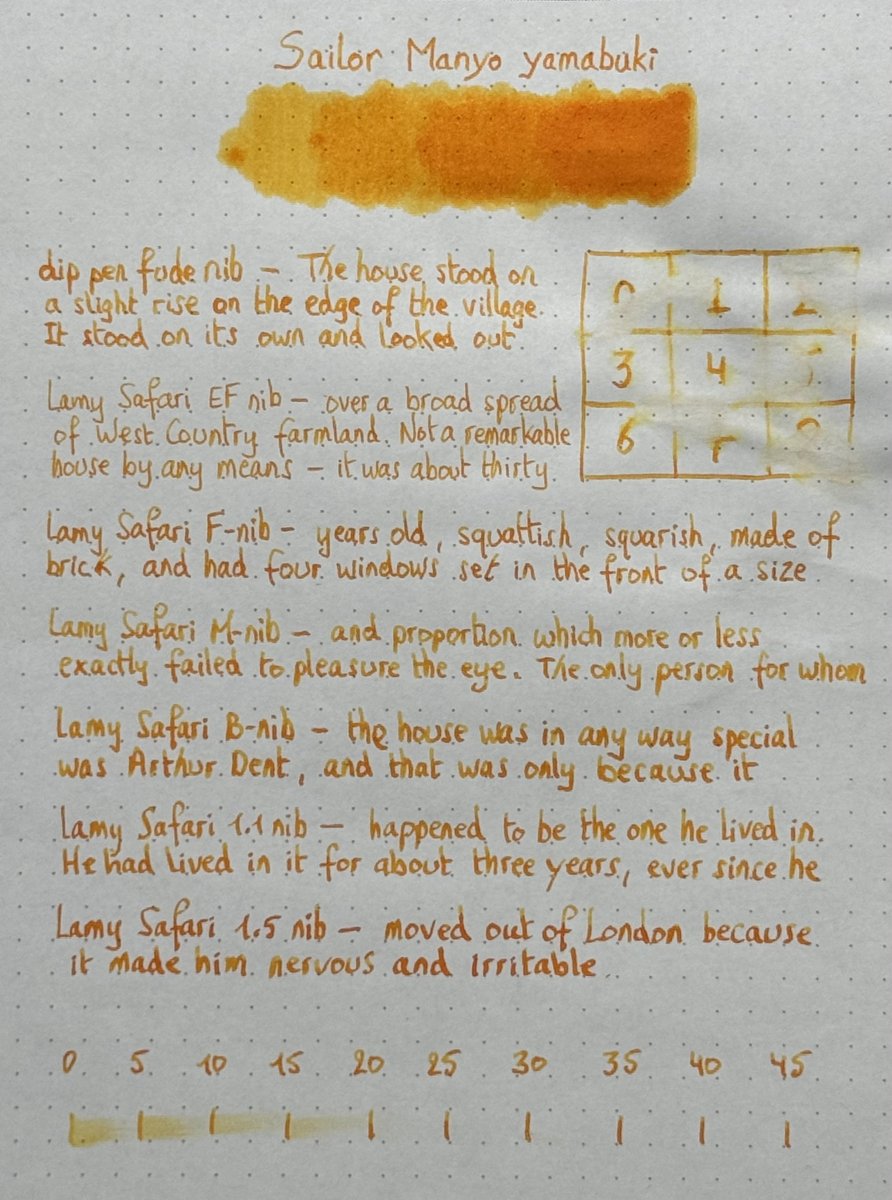 Sailor Manyo yamabuki
dip pen fude nib – The house stood on
a slight rise on the edge of the village.
It stood on its own and looked out
1
3 4
6
Lamy Safari EF nib – over a broad spread
of West Country farmland. Not a remarkable
house by any means – it was about thirty
Lamy Safari F-nib – years old, squattish, squarish, made of
brick, and had four windows set in the front of a size
Lamy Safari M-nib – and proportion which more or less
exactly failed to pleasure the eye. The only person for whom
Lamy Safari B-nib – the house was in any way special
was Arthur Dent, and that was only because it
Lamy Safari 1.1 nib – happened to be the one he lived in.
He had lived in it for about three years, ever since he
Lamy Safari 1.5 nib – moved out of London because
it made him nervous and irritable.
0 5 10 15 20 25 30 35 40 45